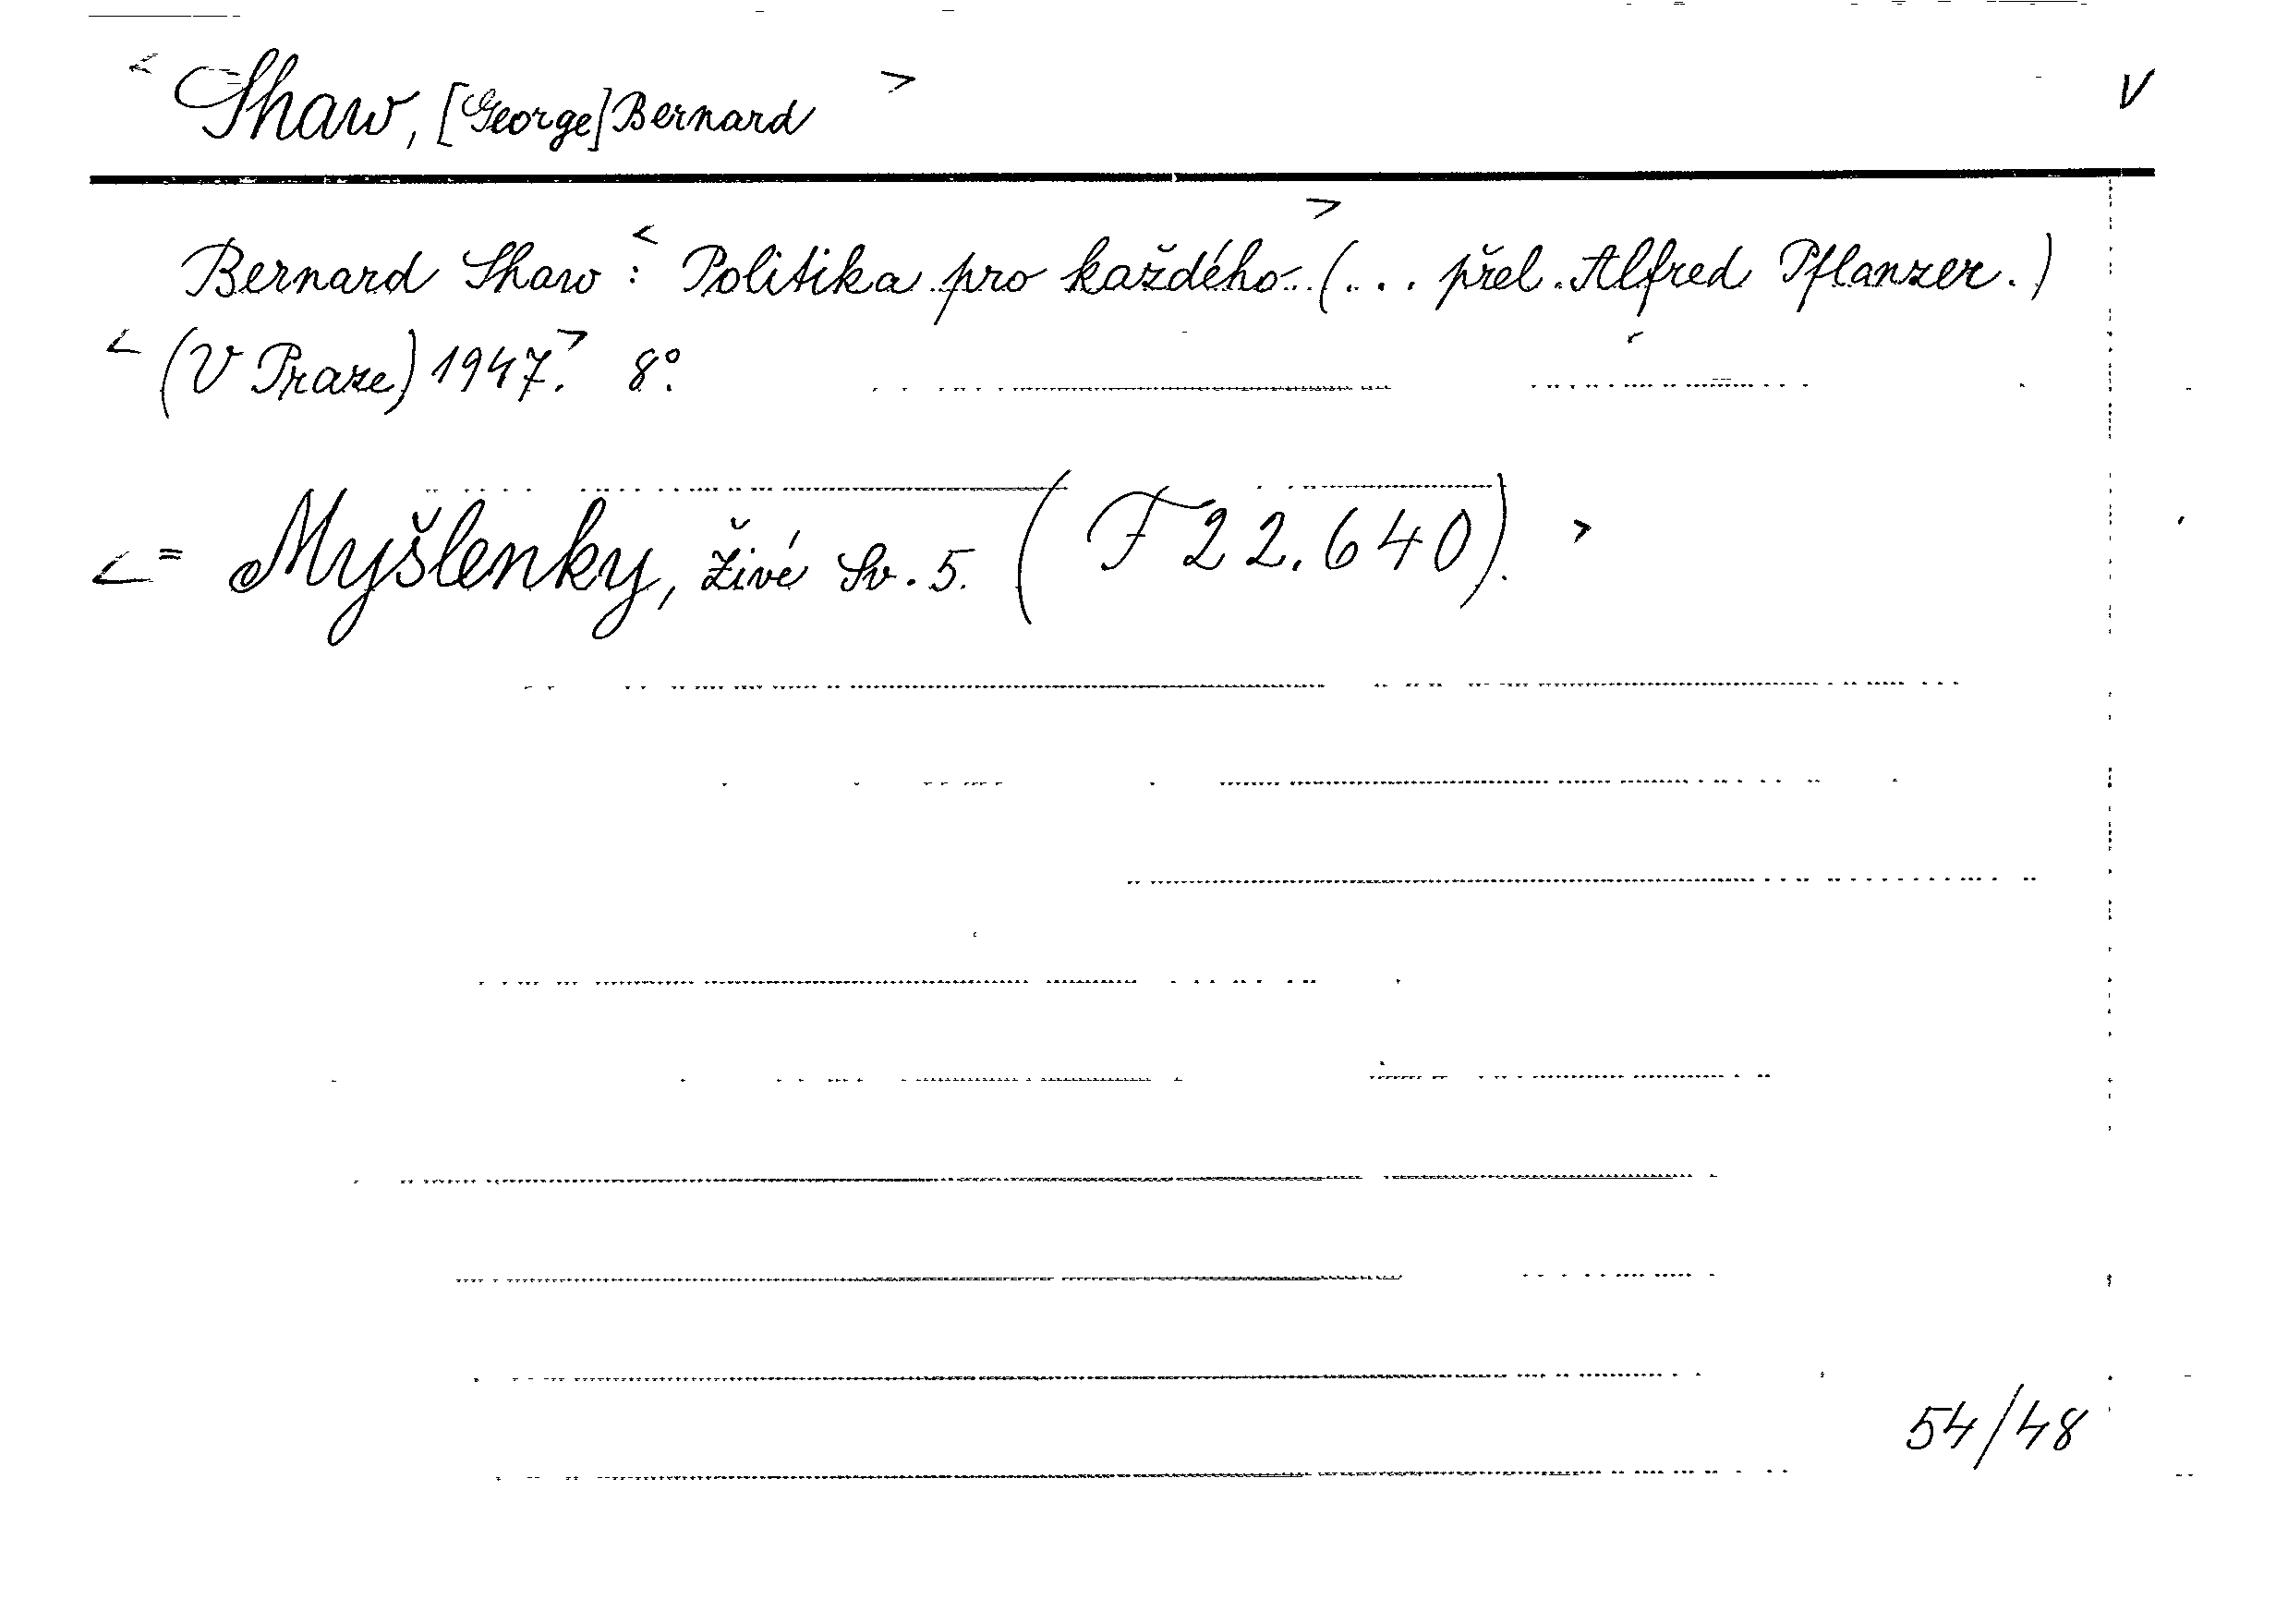 < Shaw, [George] Bernard > V
Bernard Shaw: < Politika pro každého > (... přel. Alfred Pflanzer.)
< (V Praze) 1947. > 8°.
< = Myšlenky, živé Sv. 5. (F 22.640). >
54/48